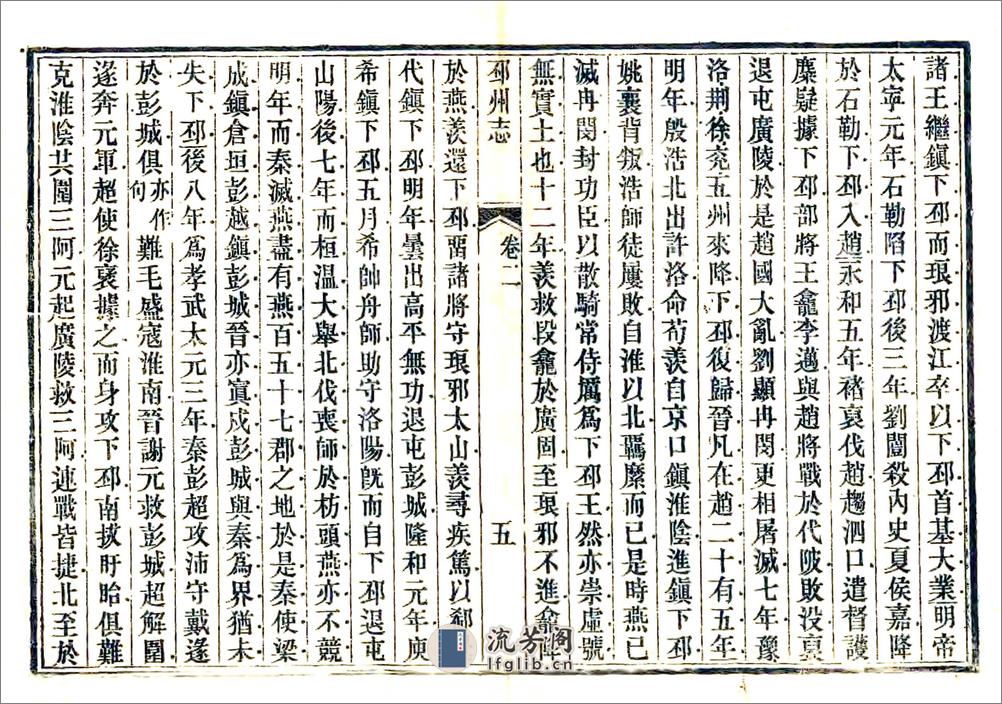 諸王繼鎮下邳而琅邪渡江卒以下邳首基大業明帝
太寧元年石勒陷下邳後三年劉闓殺內史夏侯嘉降
於石勒下邳入趙永和五年褚裒伐趙趨泗口遣督護
麋嶷據下邳部將王龕李邁與趙將戰於代陂敗没裒
退屯廣陵於是趙國大亂劉顯冉閔更相屠滅七年豫
洛荆徐兖五州來降下邳復歸晉凡在趙二十有五年
明年殷浩北出許洛命荀羨自京口鎮淮陰進鎮下邳
姚襄背叛浩師徒屢敗自淮以北羈縻而已是時燕已
滅冉閔封功臣以散騎常侍厲爲下邳王然亦崇虛號
無實土也十二年羨救段龕於廣固至琅邪不進龕降
邳州志
卷二
五
於燕羨還下邳畱諸將守琅邪太山羨尋疾篤以郗
代鎮下邳明年曇出高平無功退屯彭城隆和元年庾
希鎮下邳五月希帥舟師助守洛陽旣而自下邳退屯
山陽後七年而桓溫大舉北伐喪師於枋頭燕亦不競
明年而秦滅燕盡有燕百五十七郡之地於是秦使梁
成鎮倉垣彭越鎮彭城晉亦寘戍彭城與秦爲界猶未
失下邳後八年爲孝武太元三年秦彭超攻沛守戴逯
於彭城俱亦作句難毛盛寇淮南晉謝元救彭城超解圍
遂奔元軍超使徐襃據之而身攻下邳南拔盱眙俱難
克淮陰共圍三阿元起廣陵救三阿連戰皆捷北至於
流芳阁
lfglib.cn